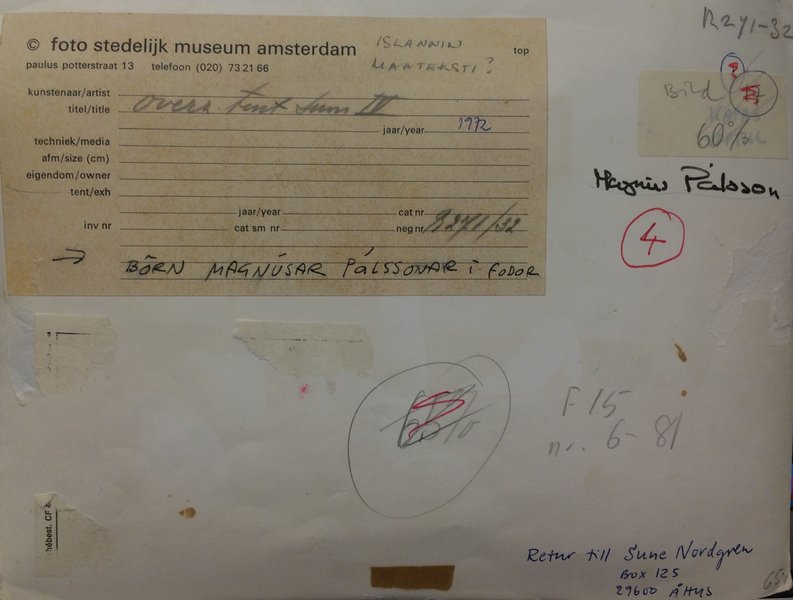 © foto stedelijk museum amsterdam
paulus potterstraat 13 telefoon (020) 73 21 66
ISLANNIN
MAATEKSTI?
top
kunstenaar/artist
titel/title
jaar/year 1972
techniek/media
afm/size (cm)
eigendom/owner
tent/exh
jaar/year cat nr
inv nr cat sm nr neg nr R271/32
→ BÖRN MAGNÚSAR PÁLSSONAR i FODOR
R271-32
Bild
60%
Magnús Pálsson
4
F 15
nr. 6-81
hébest. CF4
Retur till Sune Nordgren
BOX 125
29600 ÅHUS